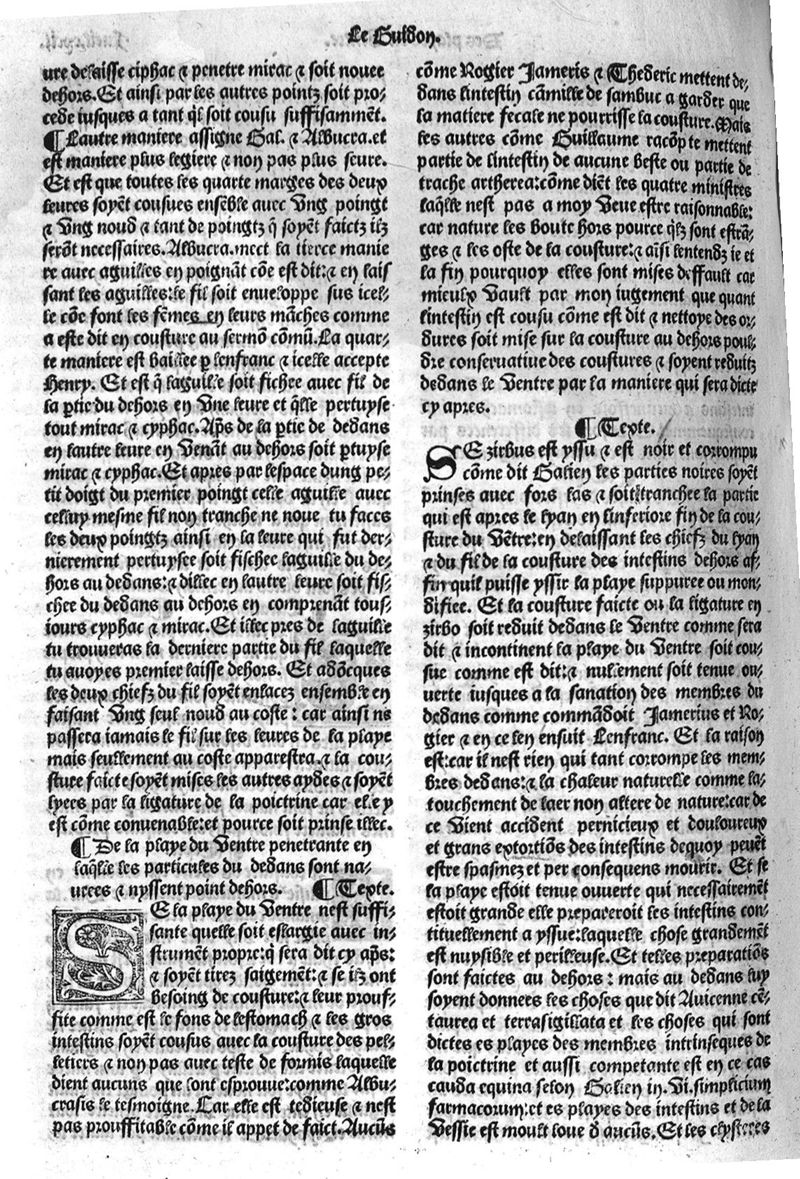 Le Guidon.
ure delaisse ciphac ⁊ penetre mirac ⁊ soit nouee
dehors. Et ainsi par les autres pointz soit pro-
cede iusques a tant q̄l soit cousu suffisammēt.
¶ Lautre maniere assigne Gal. ⁊ Albucra. et
est maniere plus legiere ⁊ non pas plus seure.
Et est que toutes les quarte marges des deux
leures soyēt cousues ensēble auec vng poingt
⁊ vng noud ⁊ tant de poingtz q̄ soyēt faictz ilz
serōt necessaires. Albucra. mect la tierce manie
re auec aguilles en poignāt cōe est dit: ⁊ en lais
sant les aguilles: le fil soit enueloppe sus icel-
le cōe font les fēmes en leurs māches comme
a este dit en cousture au sermō cōmū. La quar-
te maniere est baillee p̱ lenfranc ⁊ icelle accepte
Henry. Et est q̄ laguille soit fichee auec fil de
la p̱tie du dehors en vne leure et q̄lle pertuyse
tout mirac ⁊ cyphac. Ap̄s de la p̱tie de dedans
en lautre leure en venāt au dehors soit p̱tuyse
mirac ⁊ cyphac. Et apres par lespace dung pe-
tit doigt du premier poingt celle aguille auec
celluy mesme fil non tranche ne noue tu faces
les deux poingtz ainsi en la leure qui fut der-
nierement pertuysee soit fischee laguille du de-
hors au dedans: ⁊ dillec en lautre leure soit fis-
chee du dedans au dehors en comprenāt tous-
iours cyphac ⁊ mirac. Et illec pres de laguille
tu trouueras la derniere partie du fil laquelle
tu auoyes premier laisse dehors. Et adōcques
les deux chiefz du fil soyēt enlacez ensemble en
faisant vng seul noud au coste: car ainsi ne
passera iamais le fil sur les leures de la playe
mais seullement au coste apparestra. ⁊ la cou-
sture faicte soyēt mises les autres aydes ⁊ soyēt
lyees par la ligature de la poictrine car elle y
est cōme conuenable: et pource soit prinse illec.
¶ De la playe du ventre penetrante en
laq̄lle les particules du dedans sont na-
urees ⁊ nyssent point dehors. ¶ Texte.
SE la playe du ventre nest suffi-
sante quelle soit eslargie auec in-
strumēt propre: q̄ sera dit cy ap̄s:
⁊ soyēt tirez saigemēt: ⁊ se ilz ont
besoing de cousture: ⁊ leur prouf-
fite comme est le fons de lestomach ⁊ les gros
intestins soyēt cousus auec la cousture des pel-
letiers ⁊ non pas auec teste de formis laquelle
dient aucuns que lont esprouue: comme Albu-
crasis le tesmoigne. Car elle est tedieuse ⁊ nest
pas prouffitable cōme il appet de faict. Aucūs
cōme Rogier Jameris ⁊ Thederic mettent de-
dans lintestin cāmille de sambuc a garder que
la matiere fecale ne pourrisse la cousture. Mais
les autres cōme Guillaume racōpte mettent
partie de lintestin de aucune beste ou partie de
trache artherea: cōme diēt les quatre ministres
laq̄lle nest pas a moy veue estre raisonnable:
car nature les boute hors pource q̄lz sont estrā-
ges ⁊ les oste de la cousture: ⁊ aīsi lentendz ie et
la fin pourquoy elles sont mises deffault car
mieulx vault par mon iugement que quant
lintestin est cousu cōme est dit ⁊ nettoye des or-
dures soit mise sur la cousture au dehors poul-
dre conseruatiue des coustures ⁊ soyent reduitz
dedans le ventre par la maniere qui sera dicte
cy apres.
¶ Texte.
SE zirbus est yssu ⁊ est noir et corrompu
cōme dit Galien les parties noires soyēt
prinses auec fors las ⁊ soit trenchee la partie
qui est apres le lyan en linferiore fin de la cou-
sture du vētre: en delaissant les chiefz du lyan
⁊ du fil de la cousture des intestins dehors af-
fin quil puisse yssir la playe suppuree ou mon-
difiee. Et la cousture faicte ou la ligature en
zirbo soit reduit dedans le ventre comme sera
dit ⁊ incontinent la playe du ventre soit cou-
sue comme est dit: ⁊ nullement soit tenue ou-
uerte iusques a la sanation des membres du
dedans comme commādoit Jamerius et Ro-
gier ⁊ en ce len ensuit Lenfranc. Et la raison
est: car il nest rien qui tant corrompe les mem-
bres dedans: ⁊ la chaleur naturelle comme la-
touchement de laer non altere de nature: car de
ce vient accident pernicieux et douloureux
et grans extortiōs des intestins dequoy peuēt
estre spasmez et per consequens mourir. Et se
la playe estoit tenue ouuerte qui necessairemēt
estoit grande elle prepareroit les intestins con-
tituellement a yssue: laquelle chose grandemēt
est nuysible et perilleuse. Et telles preparatiōs
sont faictes au dehors: mais au dedans luy
soyent donnees les choses que dit Auicenne cē-
taurea et terrasigillata et les choses qui sont
dictes es playes des membres intrinseques de
la poictrine et aussi competante est en ce cas
cauda equina selon Galien in. vi. simplicium
farmacorum: et es playes des intestins et de la
vessie est moult loue d̄ aucūs. Et les clysteres